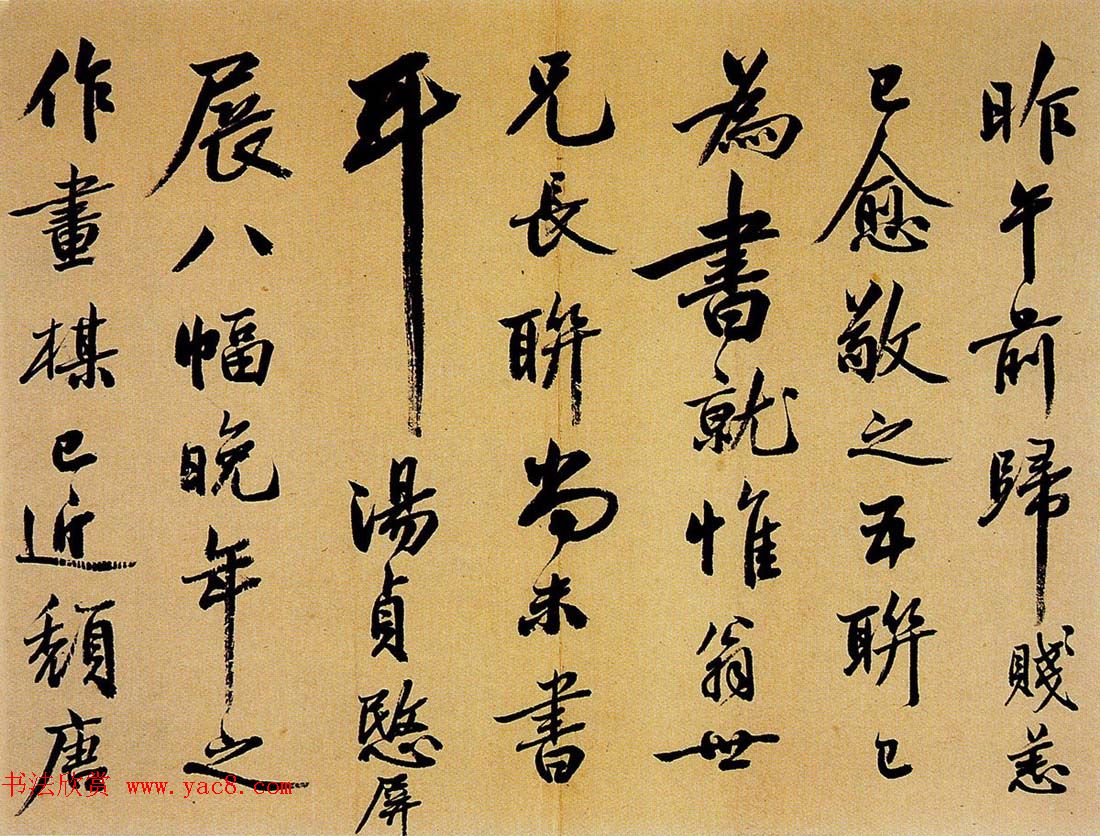 昨午前歸賤恙
已愈敬之五聯已
為書就惟翁世
兄長聯尚未書
耳湯貞愍屏
展八幅晚年之
作畫樣已近頹唐
书法欣赏 www.yac8.com